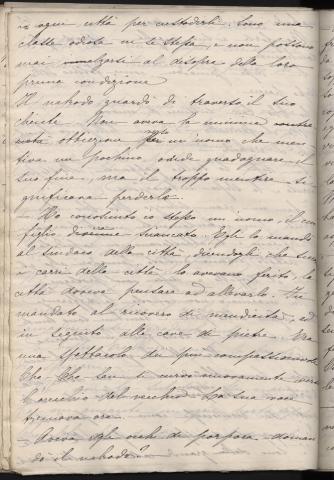 in ogni città per custoderli. Sono una
classe odiata in sè stessa, e non possono
mai alzarsi al disopra della loro
prima condizione
Il nakodo guardò di traverso il suo
cliente. Non aveva la minima
obbiezione per un uomo che men
tiva un pochino onde guadagnare il
suo fine ma il troppo mentire si
gnificava perderlo.
— Ho conosciuto io stesso un uomo, il cui
figlio divenne sciancato. Egli lo mandò
al sindaco della città, dicendogli che siccome
i carri della città lo avevano ferito, la
città doveva pensare ad allevarlo. Fu
mandato al ricovero di mendicità, ed
in seguito alle cave di pietre. Era
uno spettacolo dei più compassionevoli
Cho-Cho-San si curvò nuovamente verso
l'orecchio del vecchio. La sua voce
tremava ora.
— Aveva egli occhi di porpora — doman
dò il nakodo?